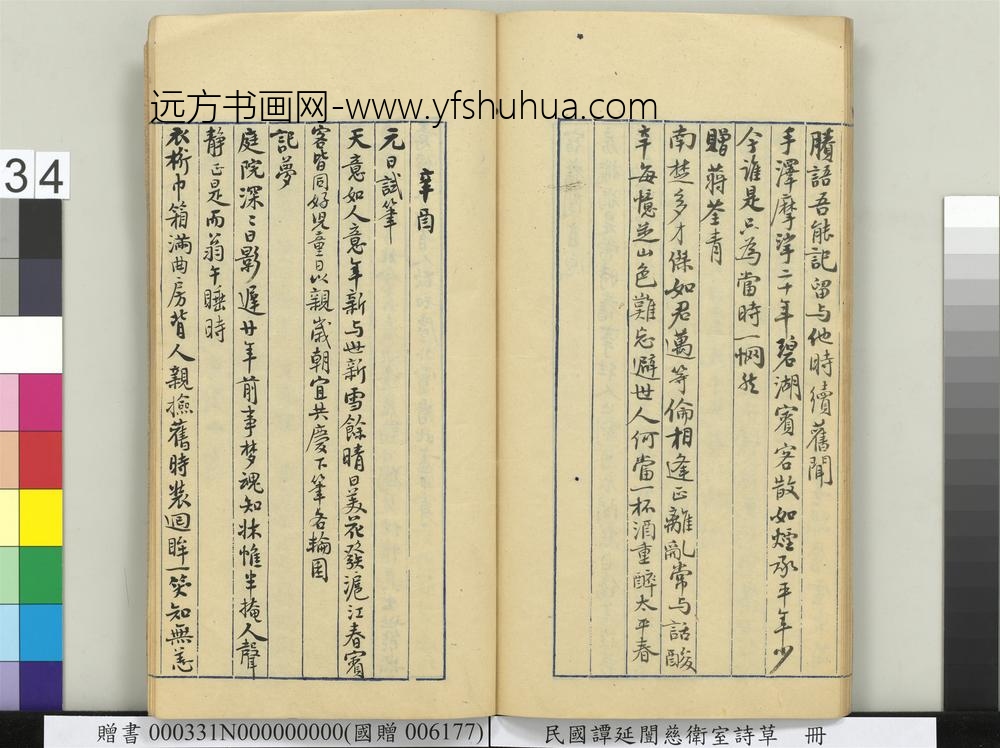 远方书画网-www.yfshuhua.com
34
賸語吾能記留与他時續舊聞
手澤摩挲二十年碧湖賓客散如煙承平年少
今誰是只為當時一惘然
贈蔣荃青
南楚多才傑如君萬等倫相逢正離亂常与話酸
辛每憶芝山色難忘避世人何當一杯酒重醉太平春
辛酉
元日試筆
天意如人意年新与世新雪餘晴日美花發滬江春賓
客皆同好兒童日以親歲朝宜共慶下筆各輪囷
記夢
庭院深〻日影遲廿年前事夢魂知牀帷半掩人聲
靜正是而翁午睡時
衣桁巾箱滿曲房背人親撿舊時裝迴眸一笑知無恙
贈書 000331N000000000(國贈 006177)
民國譚延闓慈衛室詩草 冊